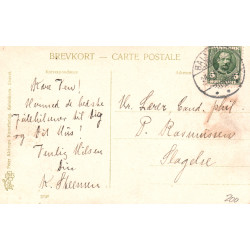 BREVKORT — CARTE POSTALE
Kære Ven!
Hermed de bedste
Julehilsner til Dig
og Dit Hus!
Venlig Hilsen
Din
Hr. Lærer, Cand. phil
P. Rasmussen
Slagelse
5
200